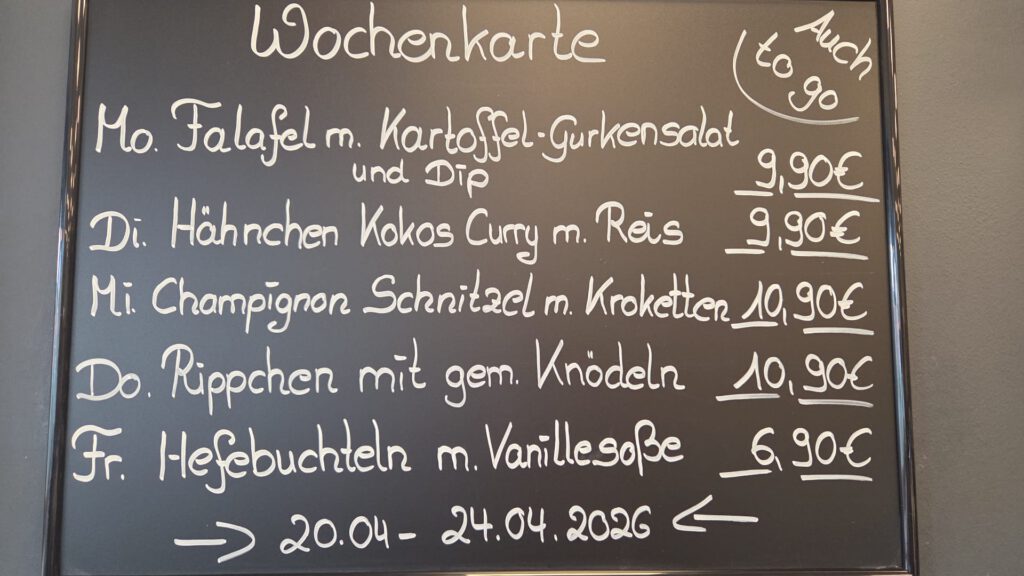 Wochenkarte
Auch
to go
Mo. Falafel m. Kartoffel-Gurkensalat
und Dip 9,90€
Di. Hähnchen Kokos Curry m. Reis 9,90€
Mi. Champignon Schnitzel m. Kroketten 10,90€
Do. Rippchen mit gem. Knödeln 10,90€
Fr. Hefebuchteln m. Vanillesoße 6,90€
→ 20.04 - 24.04.2026 ←